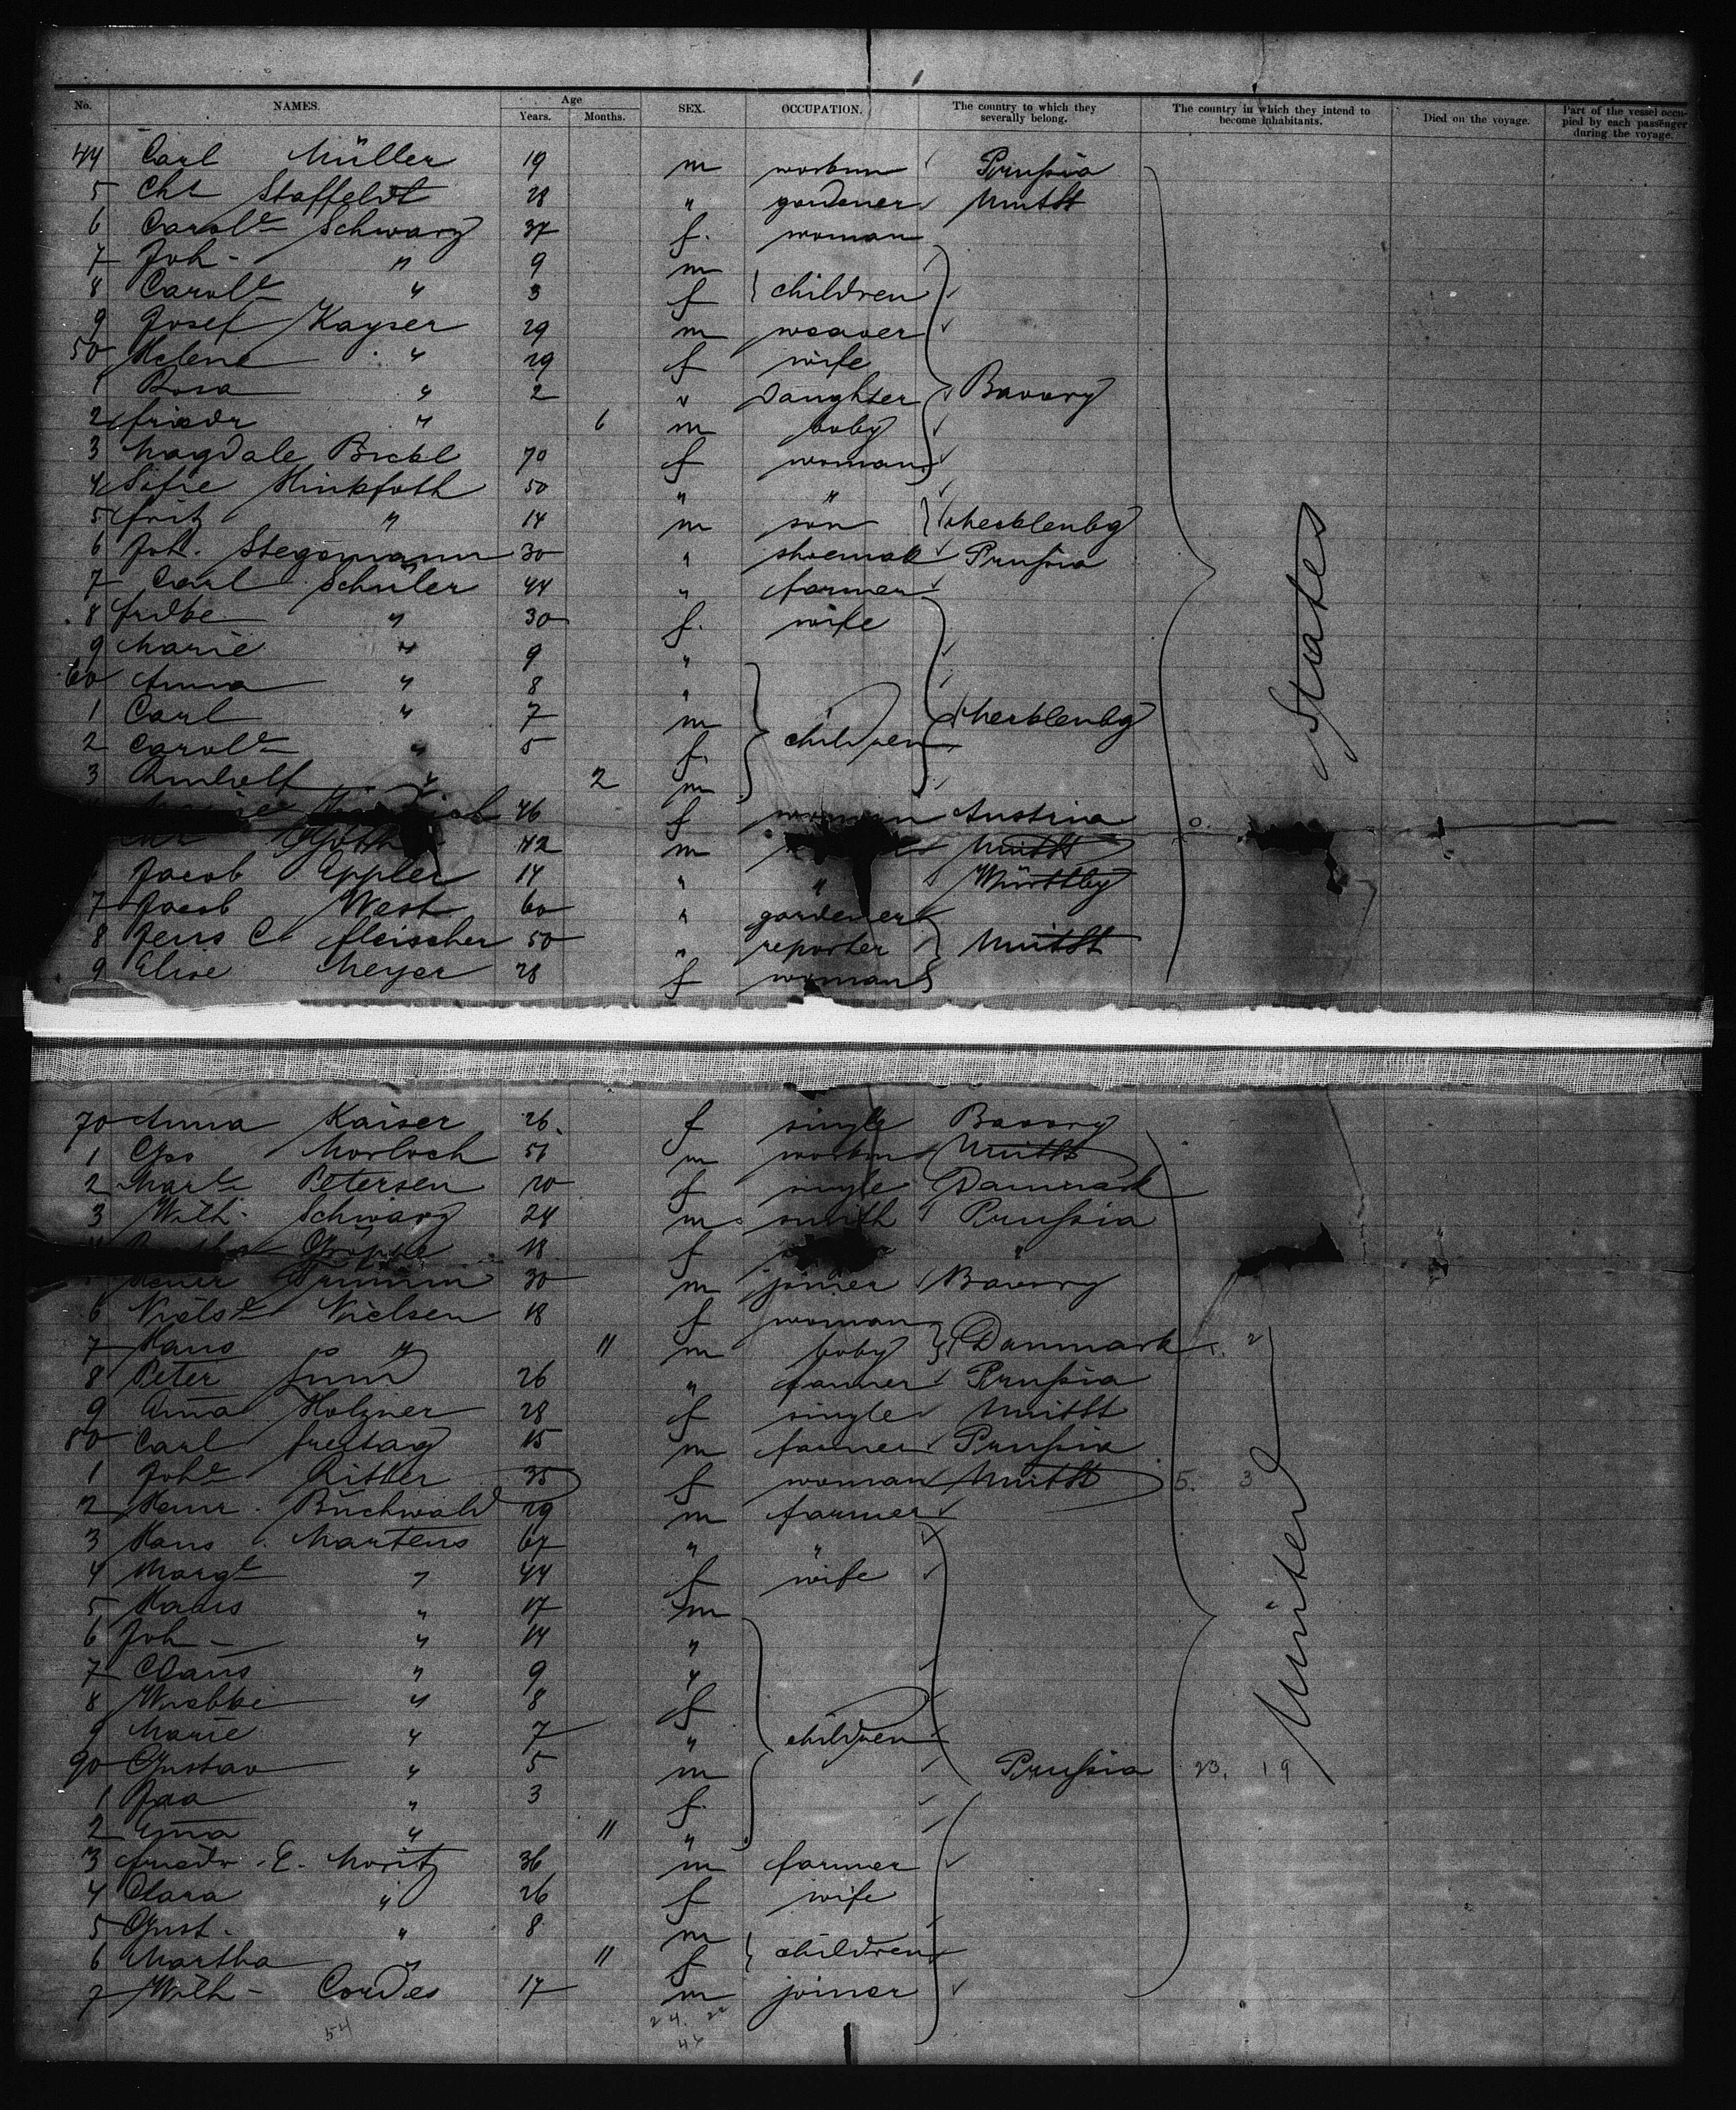 No. NAMES. Age Years. Months. SEX. OCCUPATION. The country to which they severally belong. The country in which they intend to become inhabitants. Died on the voyage. Part of the vessel occupied by each passenger during the voyage.
44 Carl Müller 19 m workm Prussia
5 Chr Staffeldt 28 " gardener UnitSt
6 Carole Schwarz 37 f. woman
7 Joh - " 9 m
8 Carole " 3 f children
9 Josef Kayser 29 m weaver
50 Helene " 29 f wife
1 Rosa " 2 " Daughter Bavary
2 Friedr " 6 m baby
3 Magdale 70 f woman
4 Sofie Hinkfoth 50 " "
5 Fritz " 14 m son Mecklenbg
6 Joh. Stegemann 30 " shoemak Prussia
7 Carl Schuler 44 " farmer
8 Fridke " 30 f. wife
9 Marie " 9 "
60 Anna " 8 "
1 Carl " 7 m Mecklenbg
2 Carole " 5 f. children
3 " 2 m
46 f woman Austria
42 m UnitSt
Jacob Eppler 14 " " Württbg
7 Jacob West 60 " gardener
8 Jens C. Fleischer 50 " reporter UnitSt
9 Elise Meyer 28 f woman
States
70 Anna Kaiser 26. f single Bavary
1 Geo Morloch 51 m workm UnitSt
2 Marie Petersen 20 f single Danmark
3 Wilh - Schwarz 24 m smith Prussia
Groppe 18 f "
Henr 30 m joiner Bavary
6 Nielse Nielsen 18 f woman
7 Hans " 11 m baby Danmark 2
8 Peter 26 " farmer Prussia
9 Ema Holzner 28 f single UnitSt
80 Carl Freitag 15 m farmer Prussia
1 Johe Ritter 35 f woman UnitSt 5. 3
2 Henr. Buchwald 29 m farmer
3 Hans Martens 67 " "
4 Margt " 44 f wife
5 Hans " 17 m
6 Joh - " 14 "
7 Claus " 9 "
8 Wiebke " 8 f
9 Marie " 7 " children
90 Gustav " 5 m Prussia 23. 19
1 " 3 f.
2 Ema " 11 "
3 Friedr. E. Moritz 36 m farmer
4 Clara " 26 f wife
5 Gust. " 8 m
6 Martha " 11 f children
7 Wilh - Cordes 17 m joiner
United
54 24. 22
46